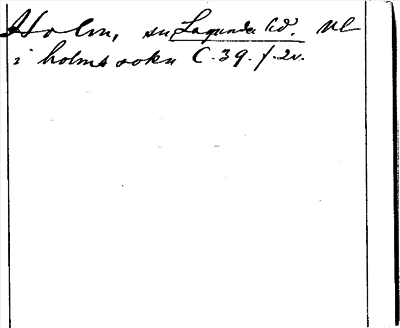 Holm, sn Lagunda hd. Ul
i holms sokn C.39.f.2v.